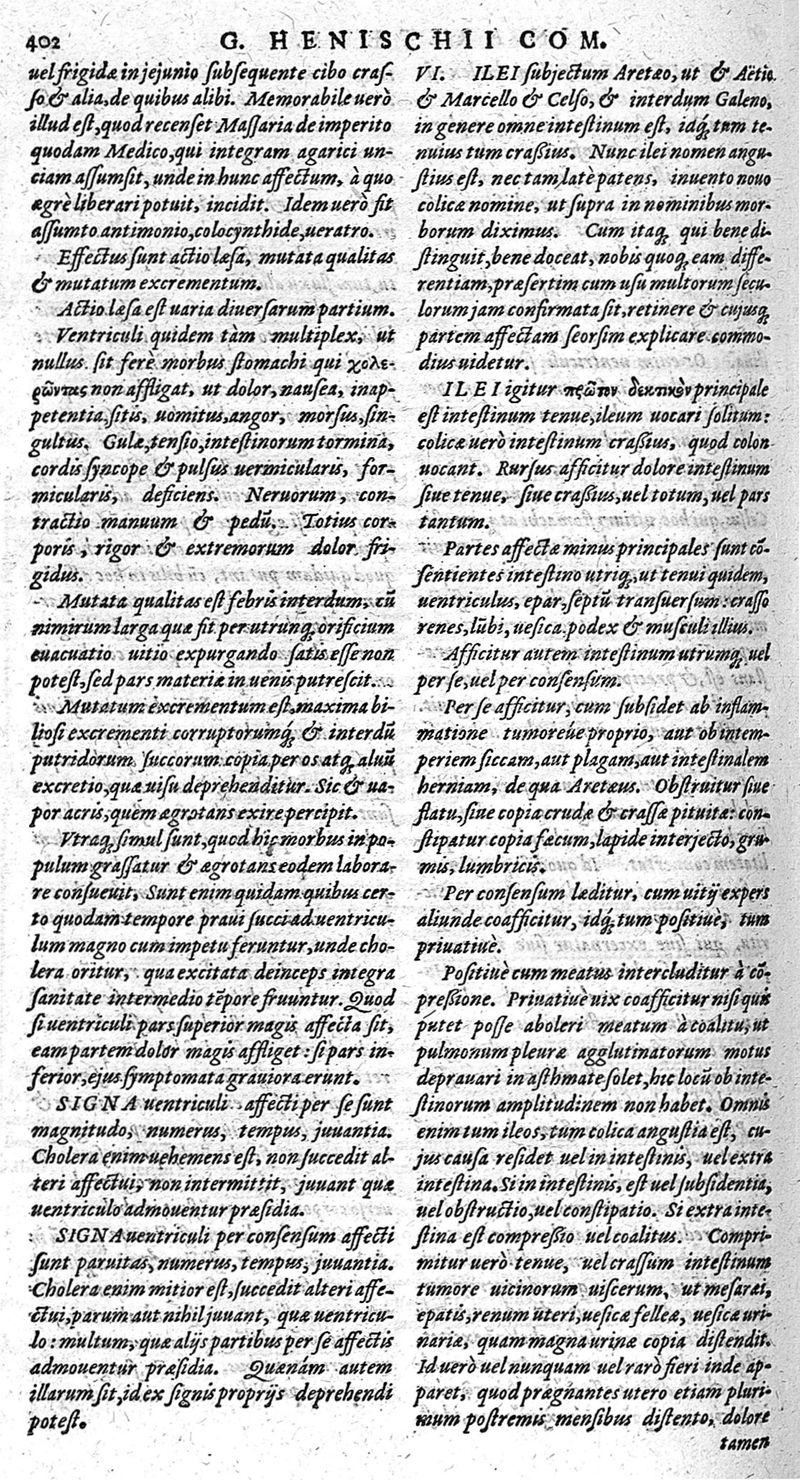 402 G. HENISCHII COM.
uel frigidæ in jejunio ſubſequente cibo craſ-
ſo & alia, de quibus alibi. Memorabile uerò
illud eſt, quod recenſet Maſſaria de imperito
quodam Medico, qui integram agarici un-
ciam aſſumſit, unde in hunc affectum, à quo
ægrè liberari potuit, incidit. Idem uerò fit
aſſumto antimonio, colocynthide, ueratro.
Effectus ſunt actio læſa, mutata qualitas
& mutatum excrementum.
Actio læſa eſt uaria diuerſarum partium.
Ventriculi quidem tàm multiplex, ut
nullus ſit ferè morbus ſtomachi qui χολε-
ρῶντας non affligat, ut dolor, nauſea, inap-
petentia, ſitis, uomitus, angor, morſus, ſin-
gultus. Gulæ, tenſio, inteſtinorum tormina,
cordis ſyncope & pulſus uermicularis, for-
micularis, deficiens. Neruorum, con-
tractio manuum & pedũ. Totius cor-
poris, rigor & extremorum dolor fri-
gidus.
Mutata qualitas eſt febris interdum, cũ
nimirum larga quæ fit per utrunq́; orificium
euacuatio uitio expurgando ſatis eſſe non
poteſt, ſed pars materiæ in uenis putreſcit.
Mutatum excrementum eſt, maxima bi-
lioſi excrementi corruptorumq́; & interdũ
putridorum ſuccorum copia per os atq́; aluũ
excretio, quæ uiſu deprehenditur. Sic & ua-
por acris, quem ægrotans exire percipit.
Vtraq́; ſimul ſunt, quod hic morbus in po-
pulum graſſatur & ægrotans eodem labora-
re conſueuit. Sunt enim quidam quibus cer-
to quodam tempore praui ſucci ad uentricu-
lum magno cum impetu feruntur, unde cho-
lera oritur, qua excitata deinceps integra
ſanitate intermedio tẽpore fruuntur. Quod
ſi uentriculi pars ſuperior magis affecta ſit,
eam partem dolor magis affliget: ſi pars in-
ferior, ejus ſymptomata grauiora erunt.
SIGNA uentriculi affecti per ſe ſunt
magnitudo, numerus, tempus, juuantia.
Cholera enim uehemens eſt, non ſuccedit al-
teri affectui, non intermittit, juuant quæ
uentriculo admouentur præſidia.
SIGNA uentriculi per conſenſum affecti
ſunt paruitas, numerus, tempus, juuantia.
Cholera enim mitior eſt, ſuccedit alteri affe-
ctui, parum aut nihil juuant, quæ uentricu-
lo: multum, quæ alijs partibus per ſe affectis
admouentur præſidia. Quænam autem
illarum ſit, id ex ſignis proprijs deprehendi
poteſt.
VI. ILEI ſubjectum Aretæo, ut & Aëtio
& Marcello & Celſo, & interdum Galeno,
in genere omne inteſtinum eſt, idq́; tum te-
nuius tum craßius. Nunc ilei nomen angu-
ſtius eſt, nec tam latè patens, inuento nouo
colicæ nomine, ut ſupra in nominibus mor-
borum diximus. Cum itaq́; qui bene di-
ſtinguit, bene doceat, nobis quoq́; eam diffe-
rentiam, præſertim cum uſu multorum ſecu-
lorum jam confirmata ſit, retinere & cujusq́;
partem affectam ſeorſim explicare commo-
dius uidetur.
ILEI igitur πρῶτον δεκτικὸν principale
eſt inteſtinum tenue, ileum uocari ſolitum:
colicæ uerò inteſtinum craßius, quod colon
uocant. Rurſus afficitur dolore inteſtinum
ſiue tenue, ſiue craßius, uel totum, uel pars
tantum.
Partes affectæ minus principales ſunt cõ-
ſentientes inteſtino utriq́;, ut tenui quidem,
uentriculus, epar, ſeptũ transuerſum: craſſo
renes, lũbi, ueſica, podex & muſculi illius.
Afficitur autem inteſtinum utrumq́; uel
per ſe, uel per conſenſum.
Per ſe afficitur, cum ſubſidet ab inflam-
matione tumoreúe proprio, aut ob intem-
periem ſiccam, aut plagam, aut inteſtinalem
herniam, de qua Aretæus. Obſtruitur ſiue
flatu, ſiue copia crudæ & craſſæ pituitæ: con-
ſtipatur copia fæcum, lapide interjecto, gru-
mis, lumbricis.
Per conſenſum læditur, cum uitij expers
aliunde coafficitur, idq́; tum poſitiuè, tum
priuatiuè.
Poſitiuè cum meatus intercluditur à cõ-
preßione. Priuatiuè uix coafficitur niſi quis
putet poſſe aboleri meatum à coalitu, ut
pulmonum pleuræ agglutinatorum motus
deprauari in aſthmate ſolet, hic locũ ob inte-
ſtinorum amplitudinem non habet. Omnis
enim tum ileos, tum colica anguſtia eſt, cu-
jus cauſa reſidet uel in inteſtinis, uel extra
inteſtina. Si in inteſtinis, eſt uel ſubſidentia,
uel obſtructio, uel conſtipatio. Si extra inte-
ſtina eſt compreßio uel coalitus. Compri-
mitur uerò tenue, uel craſſum inteſtinum
tumore uicinorum uiſcerum, ut meſaræi,
epatis, renum uteri, ueſicæ felleæ, ueſicæ uri-
nariæ, quam magna urinæ copia diſtendit.
Id uerò uel nunquam uel rarò fieri inde ap-
paret, quod prægnantes utero etiam pluri-
mum poſtremis menſibus diſtento, dolore
tamen